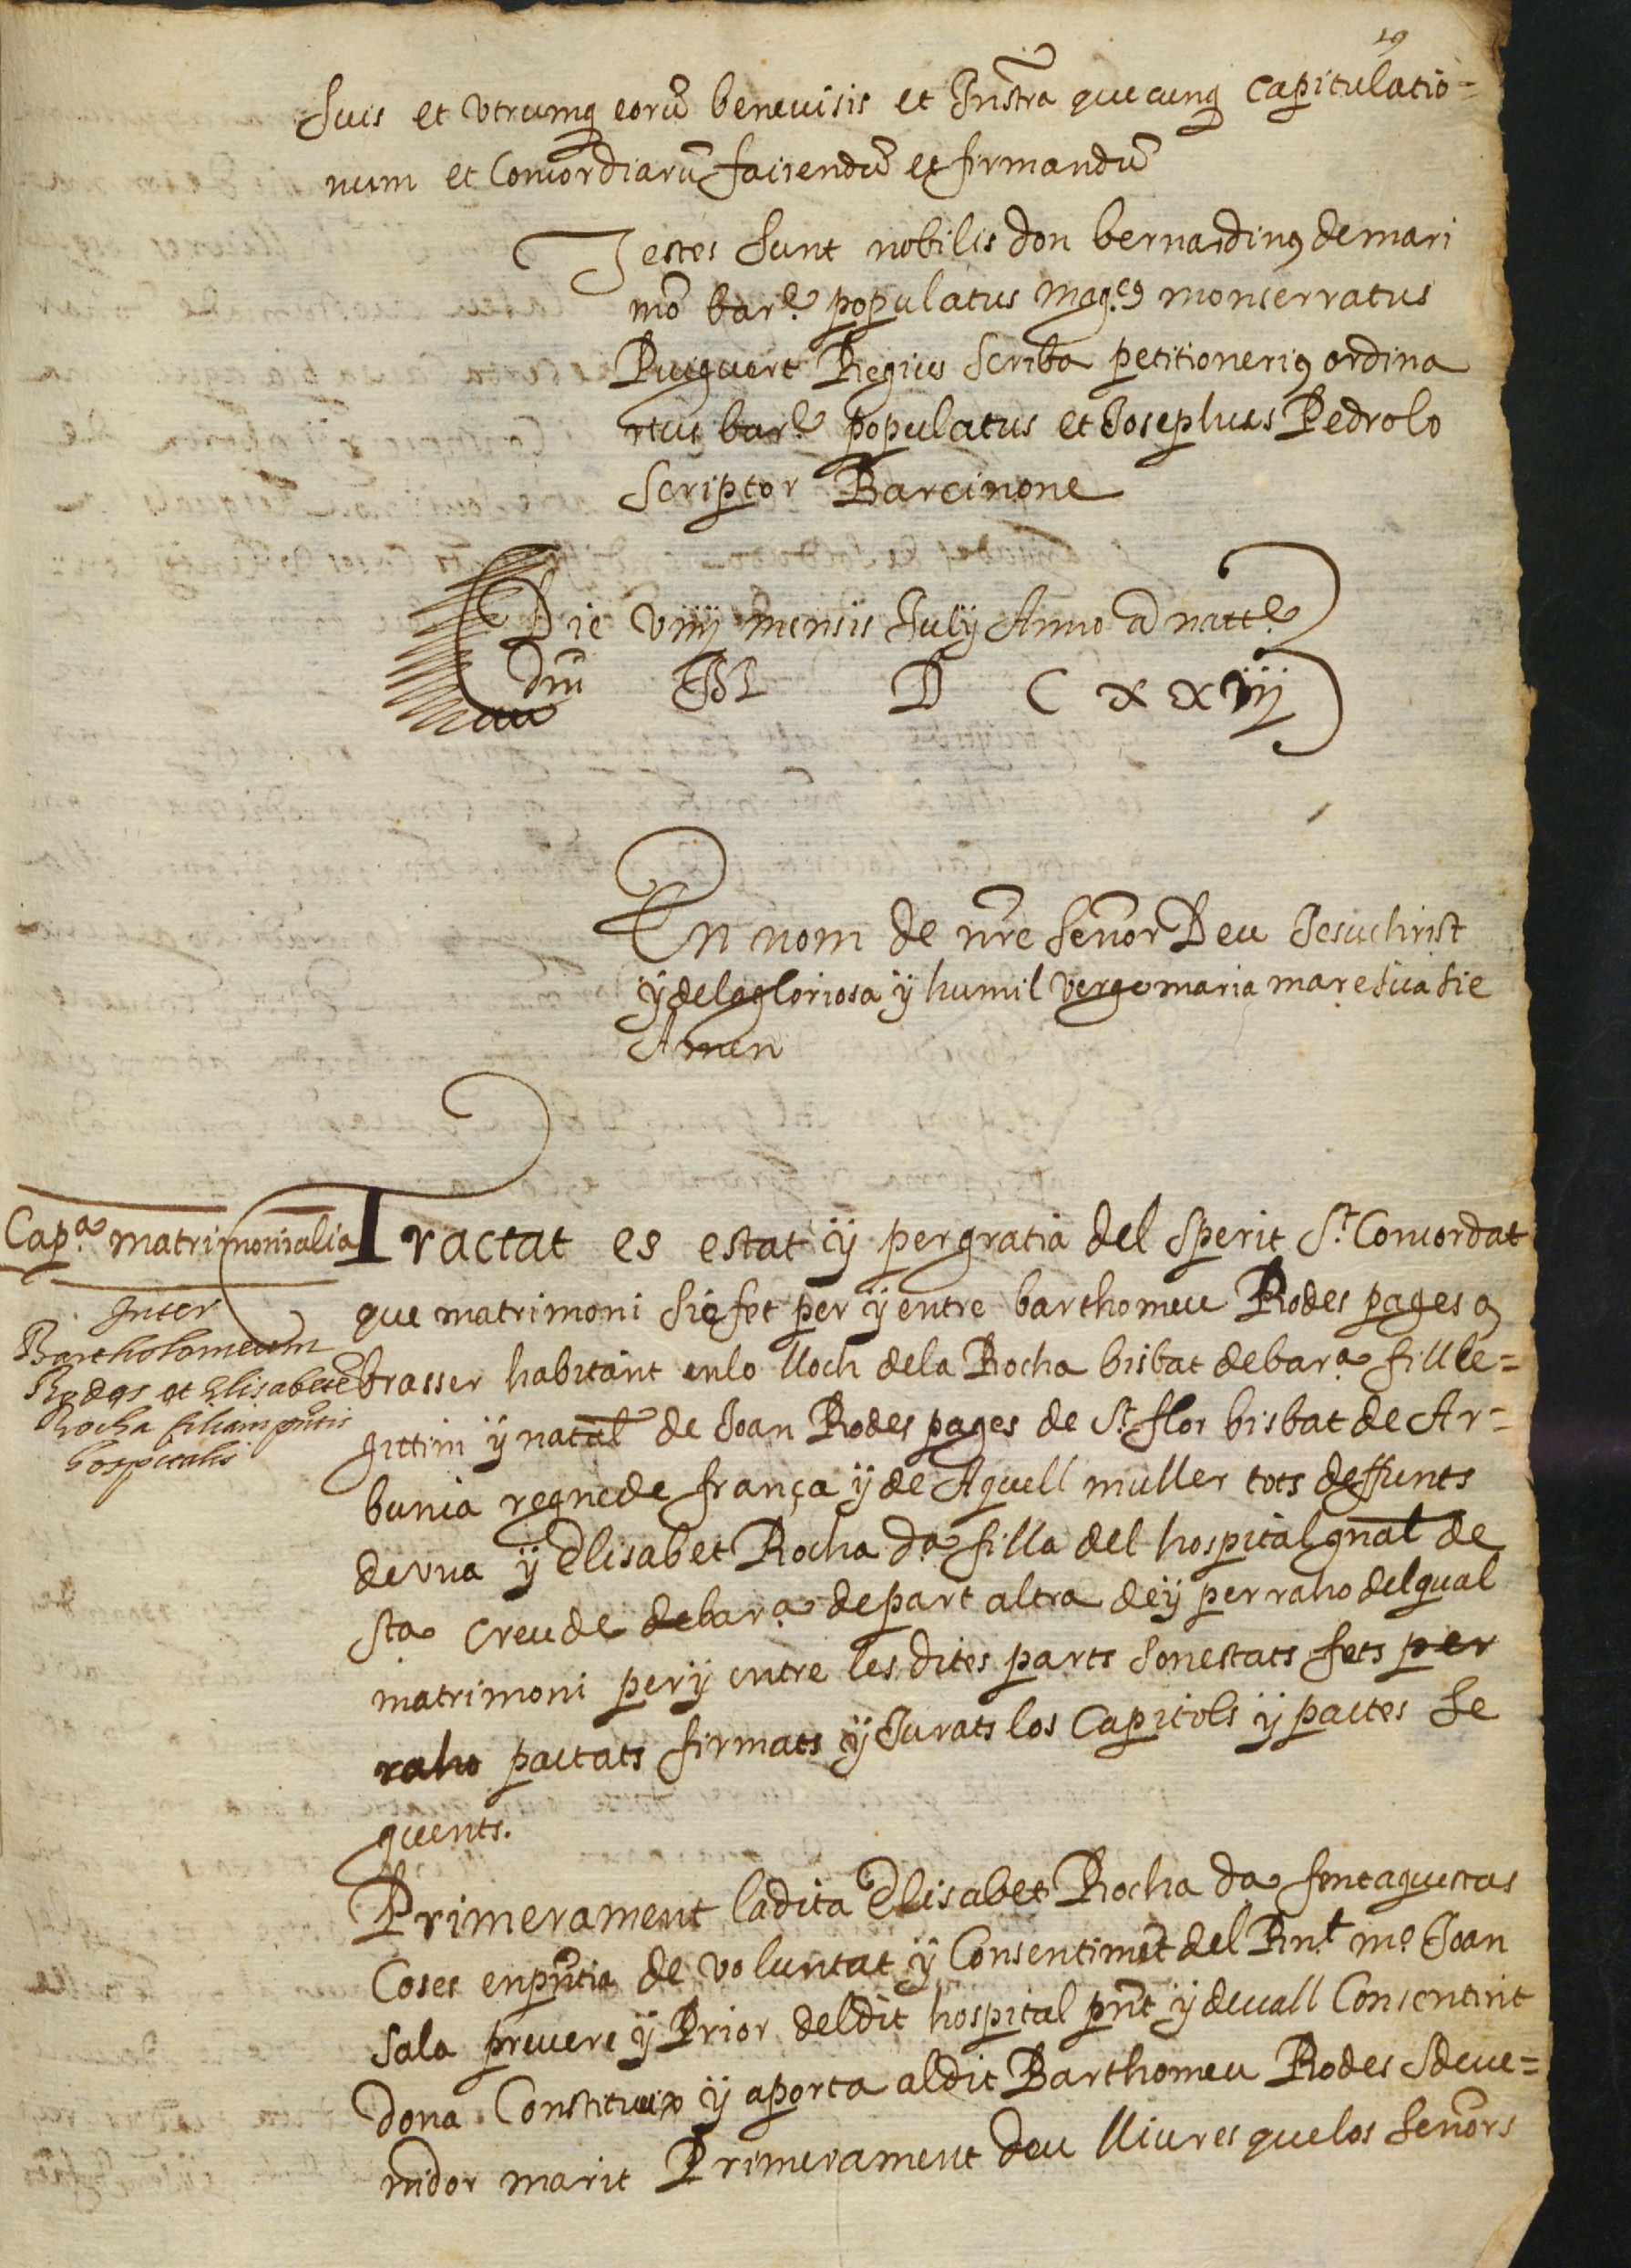 19
suis et vtrumq eorũ beneuisis et Instra quecunq Capitulatio=
num et Concordiarũ faciendũ et firmandũ
Testes sunt nobilis don bernardinq de mari
mõ bar.e populatus mag.cq monserratus
Puiguert Regius scriba petitionariq ordina
rius bar.e populatus et Josephus Pedrolo
scriptor Barcinone
Die viiij mensis Julij Anno a natte
dñi M D C xx viij
En nom de nr̃e señor Deu Jesuchrist
ÿ de la gloriosa ÿ humil verge maria mare sua sie
Amen
Cap.a matrimonialia
Inter
Bartholomeum
Rodes et Elisabete
Rocha filiam pñtis
hospitalis
Tractat es estat ÿ per gratia del sperit S.t Concordat
que matrimoni sie fet per ÿ entre barthomeu Rodes pages o
brasser habitant en lo lloch de la Rocha bisbat de bar.a fill le=
gittim ÿ natal de Joan Rodes pages de S.t flor bisbat de Ar=
bunia regne de frança ÿ de Aquell muller tots deffunts
de vna ÿ Elisabet Rocha da filla del hospital gnãl de
sta Creu de bar.a de part altra de ÿ per raho del qual
matrimoni per ÿ entre les dites parts son estats fets per
raho pactats firmats ÿ Jurats los Capitols ÿ pactes se
guents.
Primerament la dita Elisabet Rocha da fent aquestas
Coses en pñtia de voluntat ÿ Consentimẽt del Rn.t m.o Joan
Sala preuere ÿ Prior del dit hospital pñt ÿ deuall Consentint
dona Constitueix ÿ aporta al dit Barthomeu Rodes sdeue=
nidor marit Primerament deu lliures que los señors